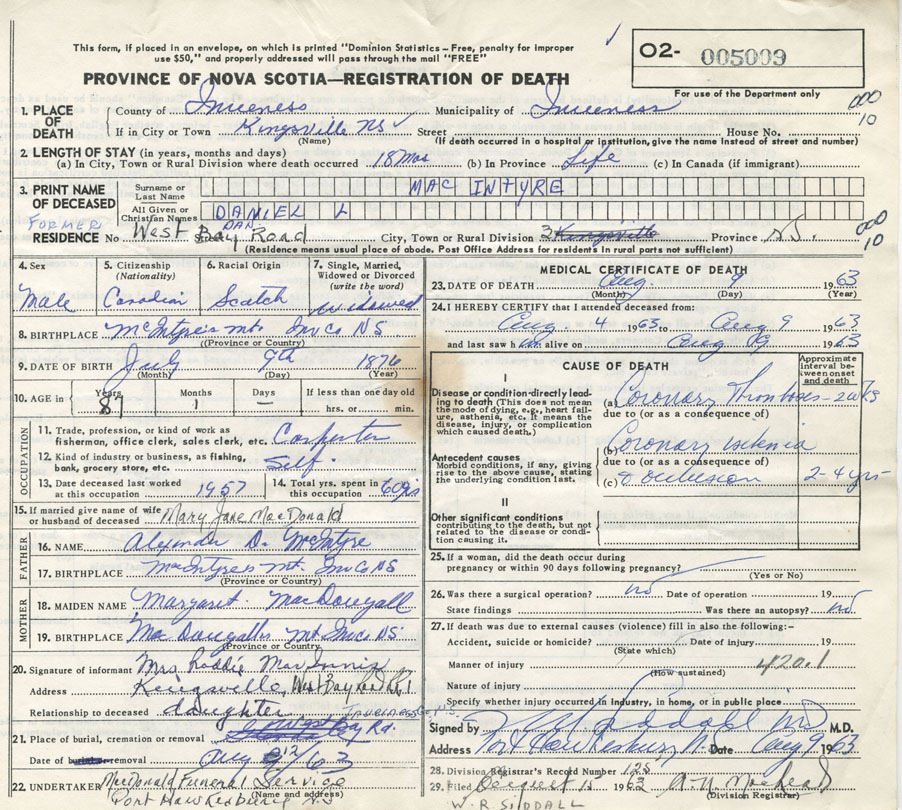 This form, if placed in an envelope, on which is printed "Dominion Statistics – Free, penalty for improper
use $50," and properly addressed will pass through the mail "FREE"
PROVINCE OF NOVA SCOTIA—REGISTRATION OF DEATH
O2- 005009
For use of the Department only
000
10
1. PLACE OF DEATH
County of Inverness Municipality of Inverness
If in City or Town Kingsville NS Street House No.
(Name) (If death occurred in a hospital or institution, give the name instead of street and number)
2. LENGTH OF STAY (in years, months and days)
(a) In City, Town or Rural Division where death occurred 18 Mos (b) In Province Life (c) In Canada (if immigrant)
3. PRINT NAME OF DECEASED
Surname or Last Name MAC INTYRE
All Given or Christian Names DANIEL L
DAN
FORMER
RESIDENCE No West Bay Road City, Town or Rural Division Kingsville Province N.S.
000
10
(Residence means usual place of abode. Post Office Address for residents in rural parts not sufficient)
4. Sex Male
5. Citizenship (Nationality) Canadian
6. Racial Origin Scotch
7. Single, Married, Widowed or Divorced (write the word) widowed
8. BIRTHPLACE McIntyre's Mt. Inv Co NS
(Province or Country)
9. DATE OF BIRTH July 9th 1876
(Month) (Day) (Year)
10. AGE in Years 87 Months 1 Days — If less than one day old hrs. or min.
OCCUPATION
11. Trade, profession, or kind of work as fisherman, office clerk, sales clerk, etc. Carpenter
12. Kind of industry or business, as fishing, bank, grocery store, etc. Self.
13. Date deceased last worked at this occupation 1957
14. Total yrs. spent in this occupation 60 yrs
15. If married give name of wife or husband of deceased Mary Jane MacDonald
FATHER
16. NAME Alexander D. McIntyre
17. BIRTHPLACE McIntyre's Mt. Inv Co NS
(Province or Country)
MOTHER
18. MAIDEN NAME Margaret MacDougall
19. BIRTHPLACE MacDougalls Mt Inv Co NS
(Province or Country)
20. Signature of informant Mrs Roddie MacInnis
Address Kingsville, West Bay Road RR1
Relationship to deceased daughter
21. Place of burial, cremation or removal Rd.
Date of burial or removal Aug 12/63
22. UNDERTAKER MacDonald Funeral Service
(Name and address)
Port Hawkesbury NS
MEDICAL CERTIFICATE OF DEATH
23. DATE OF DEATH Aug. 9 1963
(Month) (Day) (Year)
24. I HEREBY CERTIFY that I attended deceased from:
Aug. 4 1963 to Aug 9 1963
and last saw him alive on Aug 9 1963
CAUSE OF DEATH
Approximate interval between onset and death
I
Disease or condition directly leading to death (This does not mean the mode of dying, e.g., heart failure, asthenia, etc. It means the disease, injury, or complication which caused death.)
(a) Coronary Thrombosis
due to (or as a consequence of)
Antecedent causes
Morbid conditions, if any, giving rise to the above cause, stating the underlying condition last.
(b) Coronary ischemia
due to (or as a consequence of)
(c) & occlusion 2-4 yrs
II
Other significant conditions
contributing to the death, but not related to the disease or condition causing it.
25. If a woman, did the death occur during pregnancy or within 90 days following pregnancy?
(Yes or No)
26. Was there a surgical operation? no Date of operation 19
State findings Was there an autopsy? no
27. If death was due to external causes (violence) fill in also the following:–
Accident, suicide or homicide? Date of injury 19
(State which)
Manner of injury 420.1
(How sustained)
Nature of injury
Specify whether injury occurred in industry, in home, or in public place
Signed by W R Siddall MD M.D.
Address Pt Hawkesbury N. Date Aug 9 1963
28. Division Registrar's Record Number 125
29. Filed August 15 1963 (Division Registrar)
W. R. SIDDALL